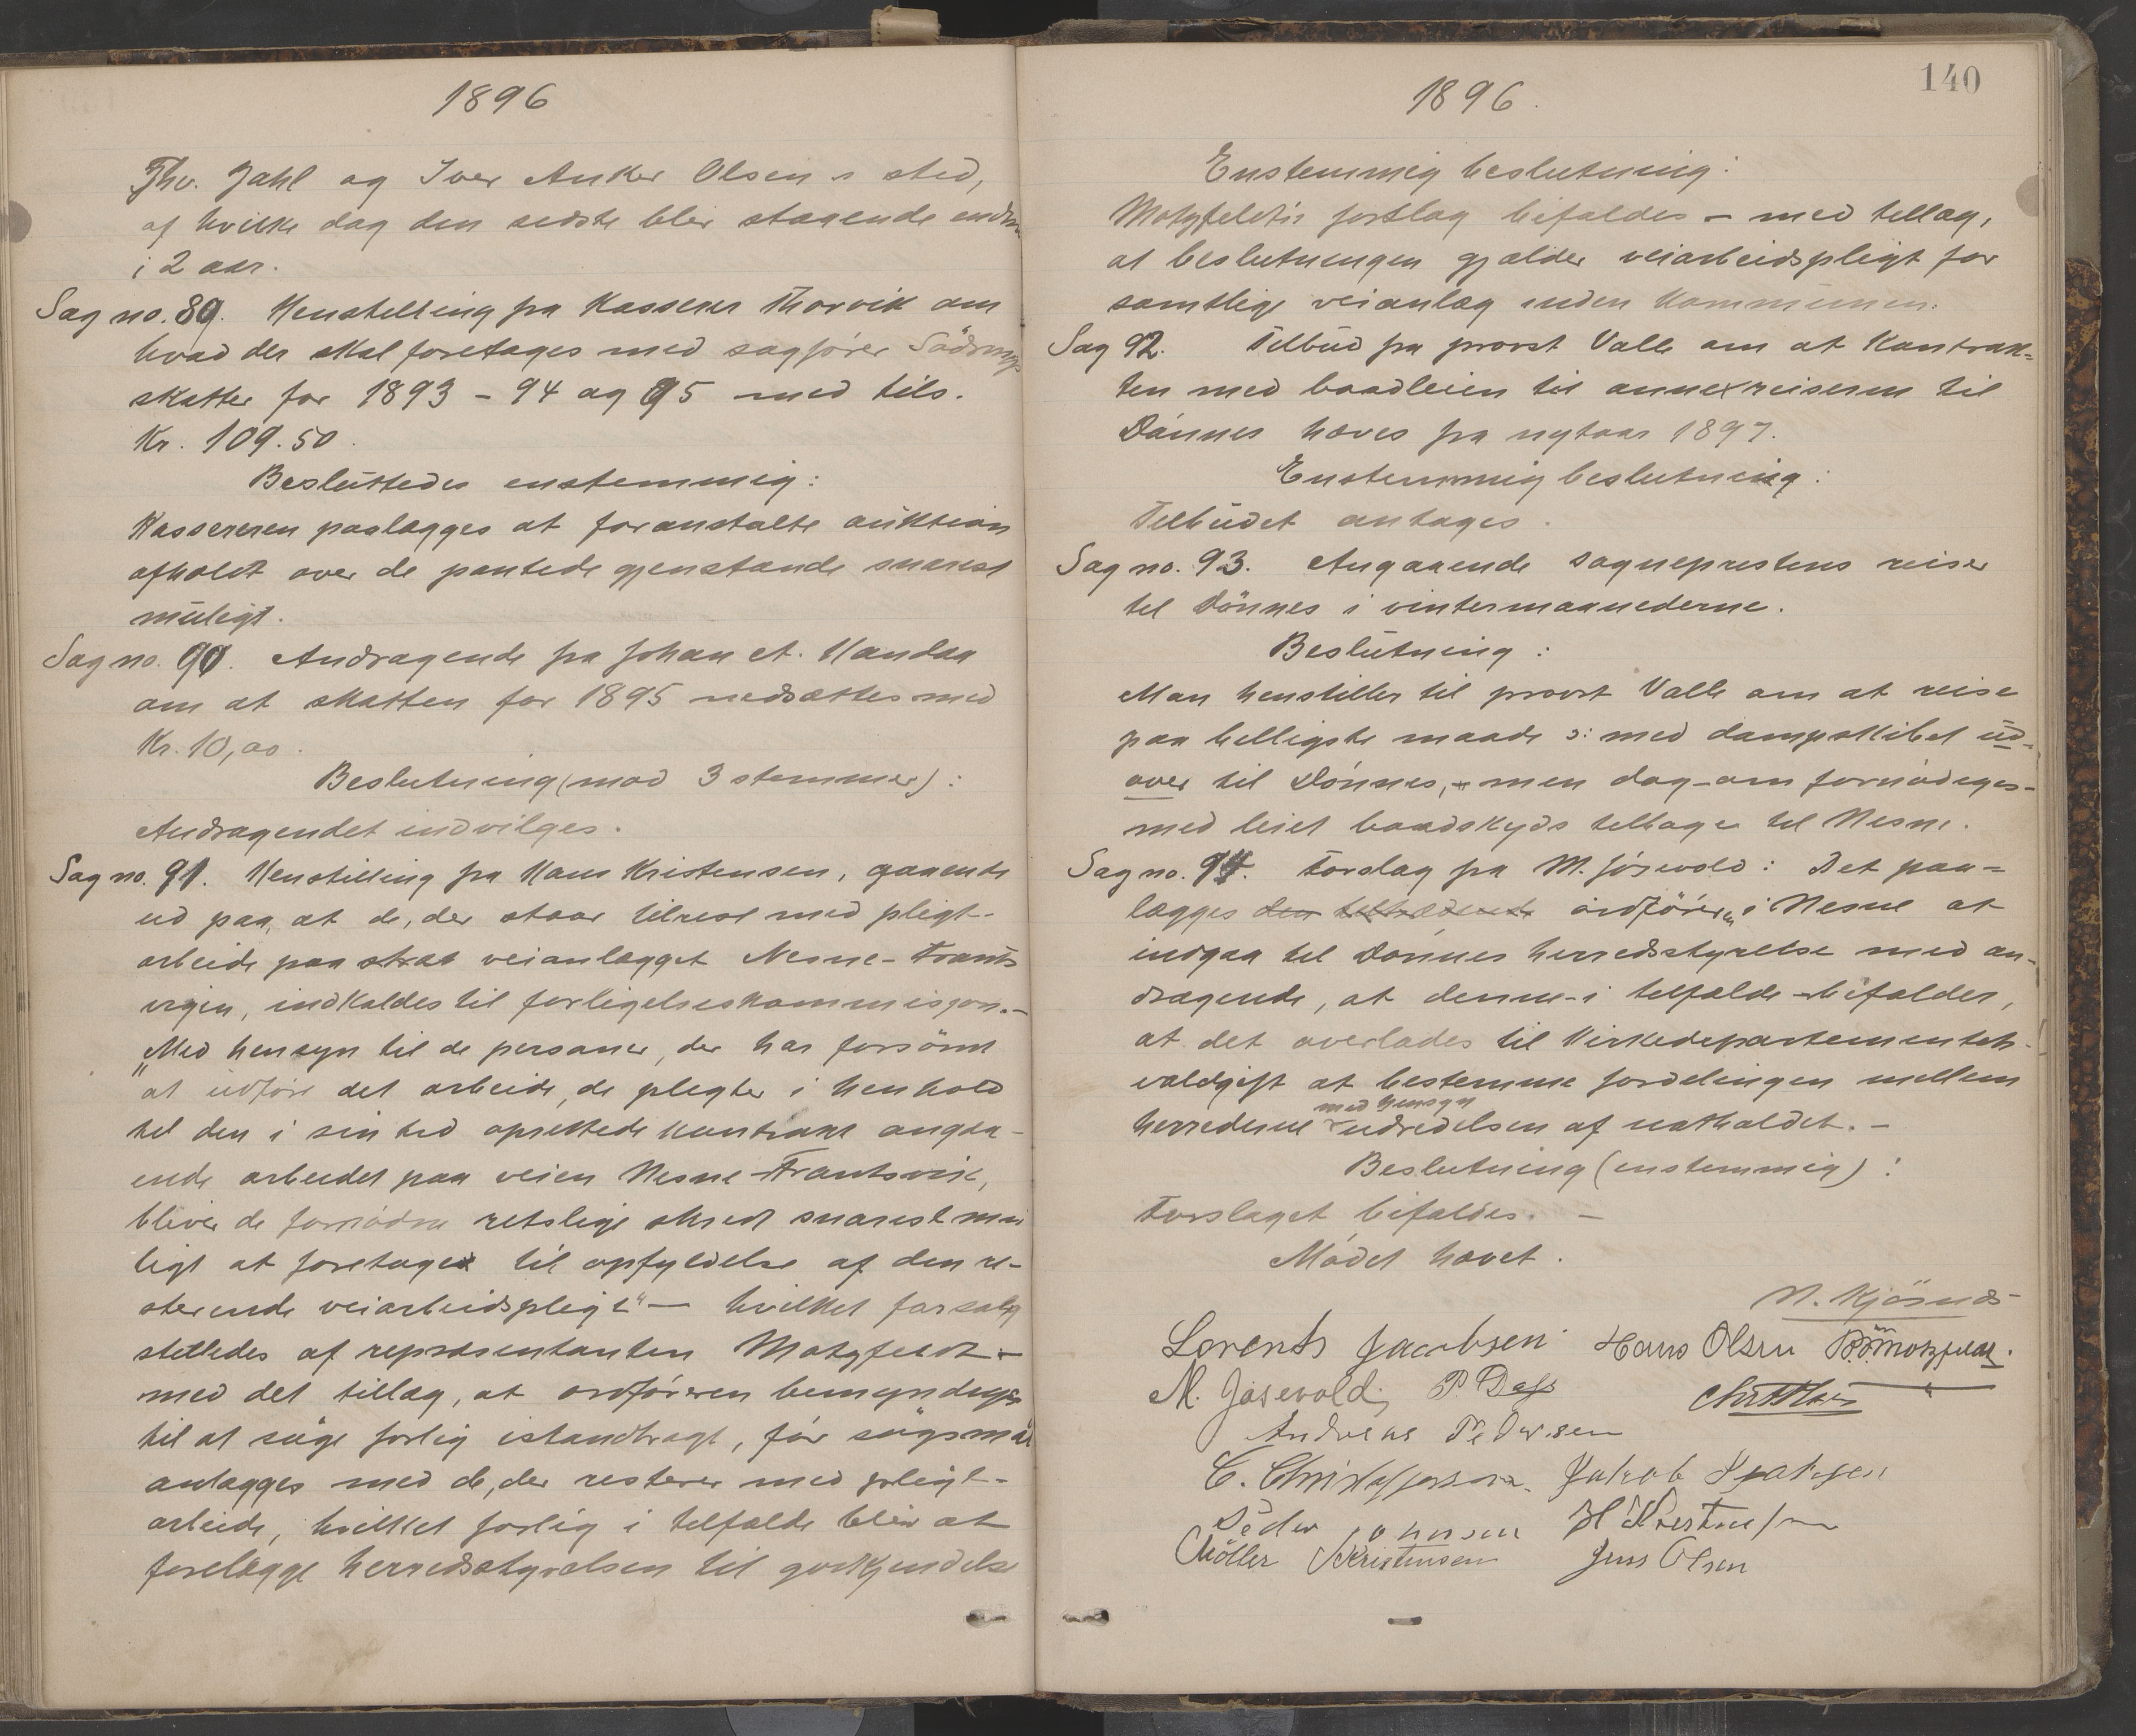 1896
Thv. Zahl og Iver Anker Olsens sted,
af hvilke dog den sedste blir staaende endnu
i 2 aar.
Sag no. 89. Henstilling fra Kasserer Thorvik om
hvad der skal foretages med sagfører Södrings
skatter for 1893 - 94 og 95 med tils.
Kr. 109.50.
Besluttedes enstemmig:
Kassereren paalægges at foranstalte auktion
afholdt over de pantede gjenstande snarest
muligt.
Sag no. 90. Andragende fra Johan A. Handaa
om at skatten for 1895 nedsættes med
Kr. 10,00.
Beslutning (mod 3 stemmer):
Andragendet indvilges.
Sag no. 91. Henstilling fra Hans Kristensen, gaaende
ud paa, at de, der staar tilrest med pligt-
arbeide paa veianlægget Nesne-Frants
vigen, indkaldes til forligelseskommissjon.-
"Med hensyn til de personer, der har forsömt
at udføre det arbeide, de pligter i henhold
til den i sin tid oprettede kontrakt angaa-
ende arbeidet paa veien Nesne-Frantsvik,
bliver de fornødne retslige skridt snarest mu
ligt at foretages til opfyldelse af den re-
sterende veiarbeidspligt" — hvilket forslag
stilledes af repræsentanten Motzfeldt -
med det tillæg, at ordføreren bemyndiges
til at søge forlig istandbragt, før søgsmål
anlægges med de, der resterer med pligt-
arbeide, hvilket forlig i tilfælde blir at
forelægge herredsstyrelsen til godkjendelse
140
1896.
Enstemmig beslutning:
Motzfeldts forslag bifaldes - med tillæg,
at beslutningen gjælder veiarbeidspligt for
samtlige veianlæg inden Kommunen.
Sag 92. Tilbud fra provst Valle om at Kontrak=
ten med baadleien til annexreiserne til
Dønnes hæves fra nytaar 1897.
Enstemmig beslutning:
Tilbudet antages.
Sag no. 93. Angaaende sogneprestens reiser
til Dönnes i vintermaanederne.
Beslutning:
Man henstiller til provst Valle om at reise
paa billigste maade ɔ: med dampskibet ud-
over til Dönnes, - men dog - om fornødiges -
med leiet baadskyds tilbage til Nesne.
Sag no. 94. Forslag fra M. Jøsevold: Det paa=
lægges den tiltrædende ordføreren i Nesne at
indgaa til Dønnes herredsstyrelse med an-
dragende, at denne - i tilfælde - bifalder,
at det overlades til Kirkedepartementets
voldgift at bestemme fordelingen mellem
herrederne med hensyn udredelsen af natholdet. -
Beslutning (enstemmig):
Forslaget bifaldes. —
Mödet hævet.
N. Kjösnæs
Lorents Jacobsen Hans Olsen Motzfeldt.
M. Jøsevold, P. Dass
Andreas Pedersen
C. Christoffersen. Jakob Isaksen
Peder Johnsen H Kristensen
Möller Kristensen Jens Olsen